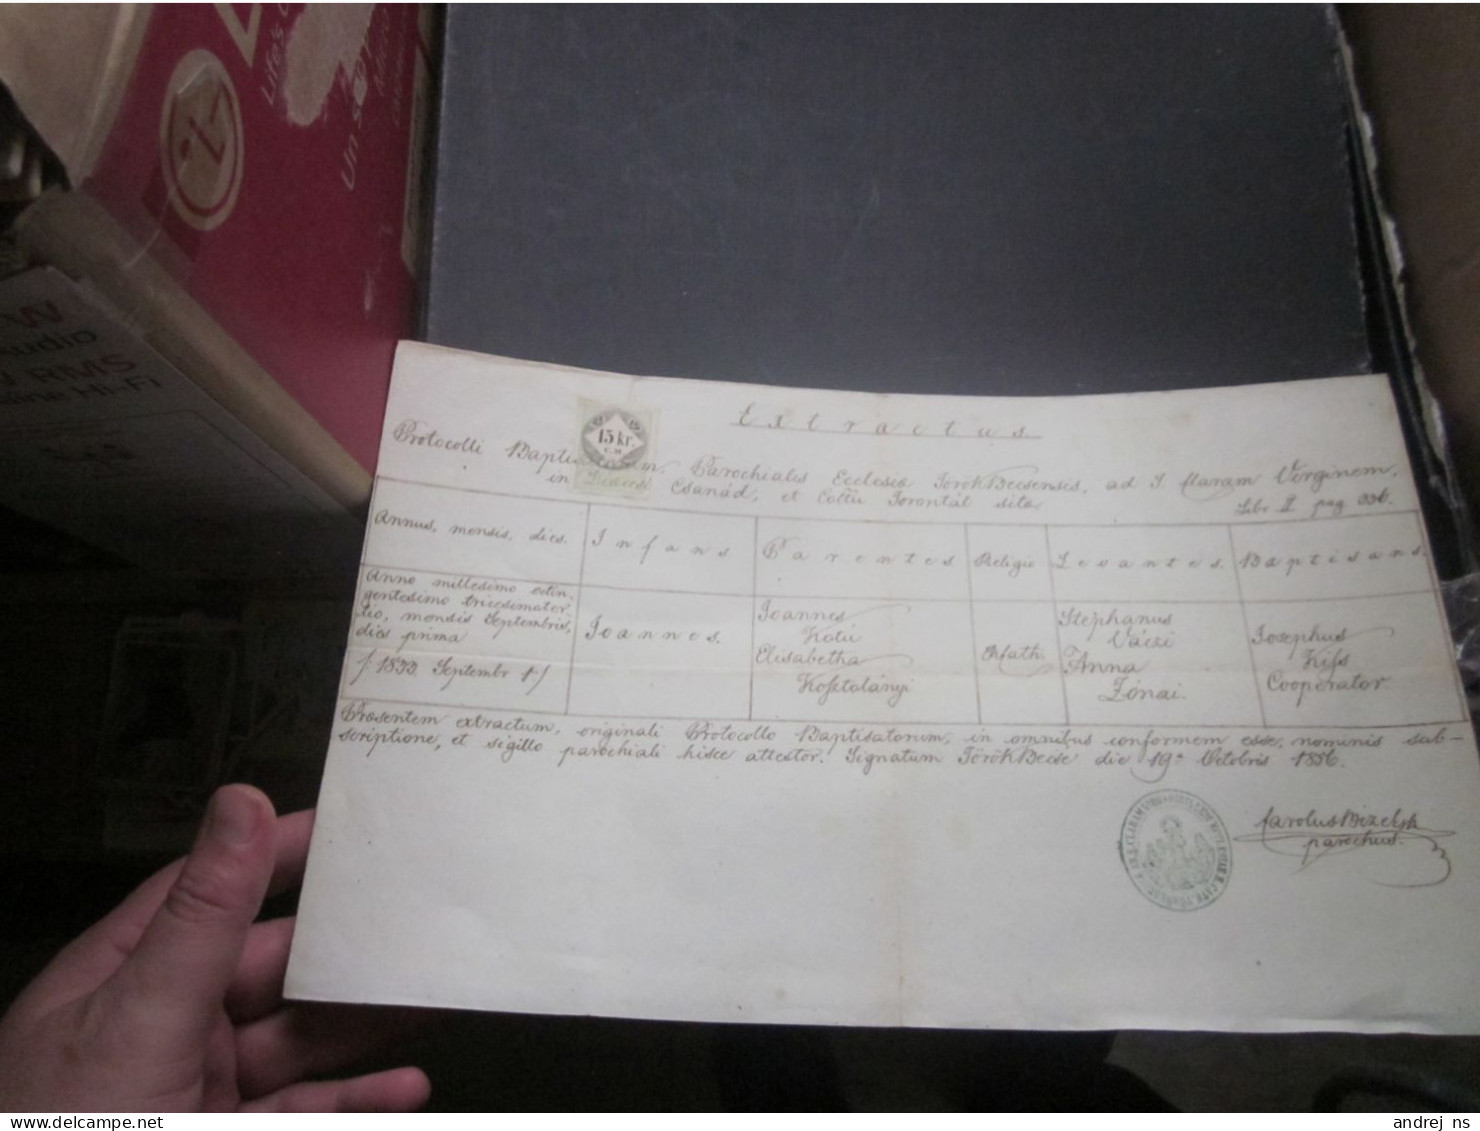 Extractus
Protocolli Baptisatorum, Parochialis Ecclesia TörökBecsensis, ad S. Mariam Virginem,
in Diœcesi Csanád, et Cottu Torontál sita
Libr II pag 336.
Annus, mensis, dies.
Infans
Parentes
Religio
Levantes.
Baptisans.
Anno millesimo octin-
gentesimo tricesimoter-
tio, mensis Septembris,
dies prima
/1833 Septembr 1/
Joannes.
Joannes
Kotú
Elisabetha
Kosztolányi
RKath.
Stephanus
Váczi
Anna
Zónai.
Josephus
Kiss
Cooperator
Præsentem extractum, originali Protocollo Baptisatorum, in omnibus conformem esse, nominis sub-
scriptione, et sigillo parochiali hisce attestor. Signatum TörökBecse die 19a Octobris 1856.
Carolus
parochus.
15 kr.
C.M.
Life's
Un
Micro
W
Audio
RMS
Hi-Fi
andrej ns